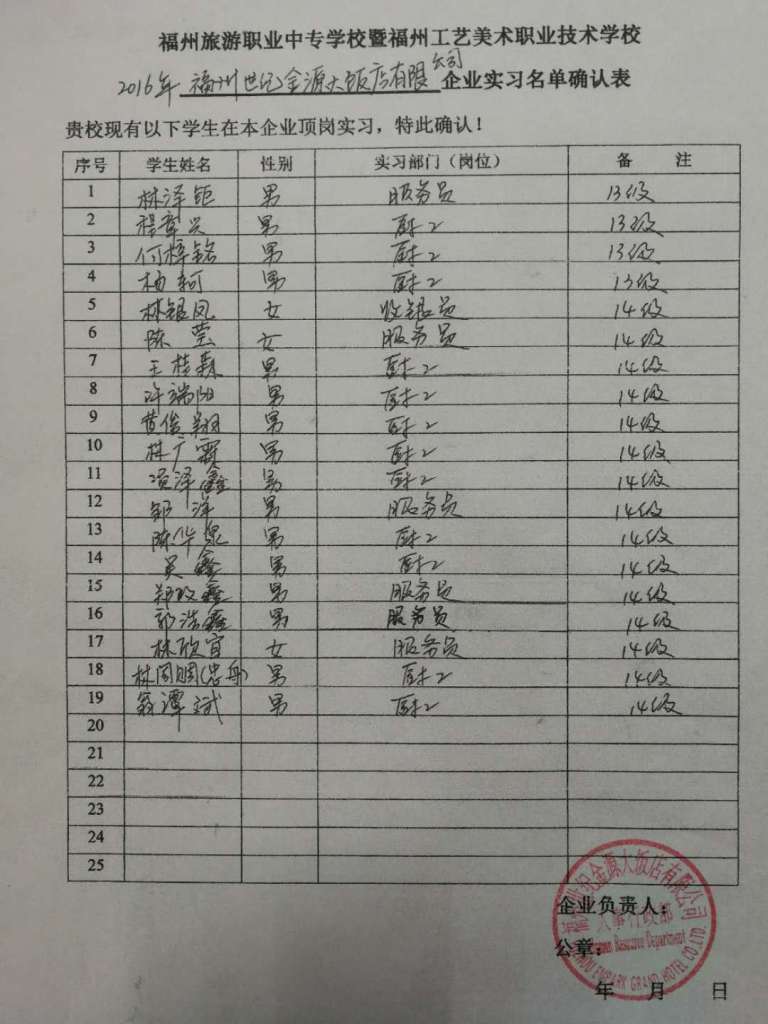 福州旅游职业中专学校暨福州工艺美术职业技术学校
2016年 福州世纪金源大饭店有限公司 企业实习名单确认表
贵校现有以下学生在本企业顶岗实习，特此确认！
序号 学生姓名 性别 实习部门（岗位） 备 注
1 林泽钜 男 服务员 13级
2 程章兴 男 厨工 13级
3 何梓铭 男 厨工 13级
4 杨轲 男 厨工 13级
5 林银凤 女 收银员 14级
6 陈莹 女 服务员 14级
7 王桂森 男 厨工 14级
8 许端阳 男 厨工 14级
9 黄俊翔 男 厨工 14级
10 林广霖 男 厨工 14级
11 泽鑫 男 厨工 14级
12 邹洋 男 服务员 14级
13 陈华泉 男 厨工 14级
14 吴鑫 男 厨工 14级
15 郑政鑫 男 服务员 14级
16 郭浩鑫 男 服务员 14级
17 林欣宜 女 服务员 14级
18 林周 男 厨工 14级
19 翁谭斌 男 厨工 14级
20
21
22
23
24
25
福州世纪金源大饭店有限公司
企业负责人：
人事行政部
Human Resource Department
公章：
FUZHOU EMPARK GRAND HOTEL CO.,LTD.
年 月 日